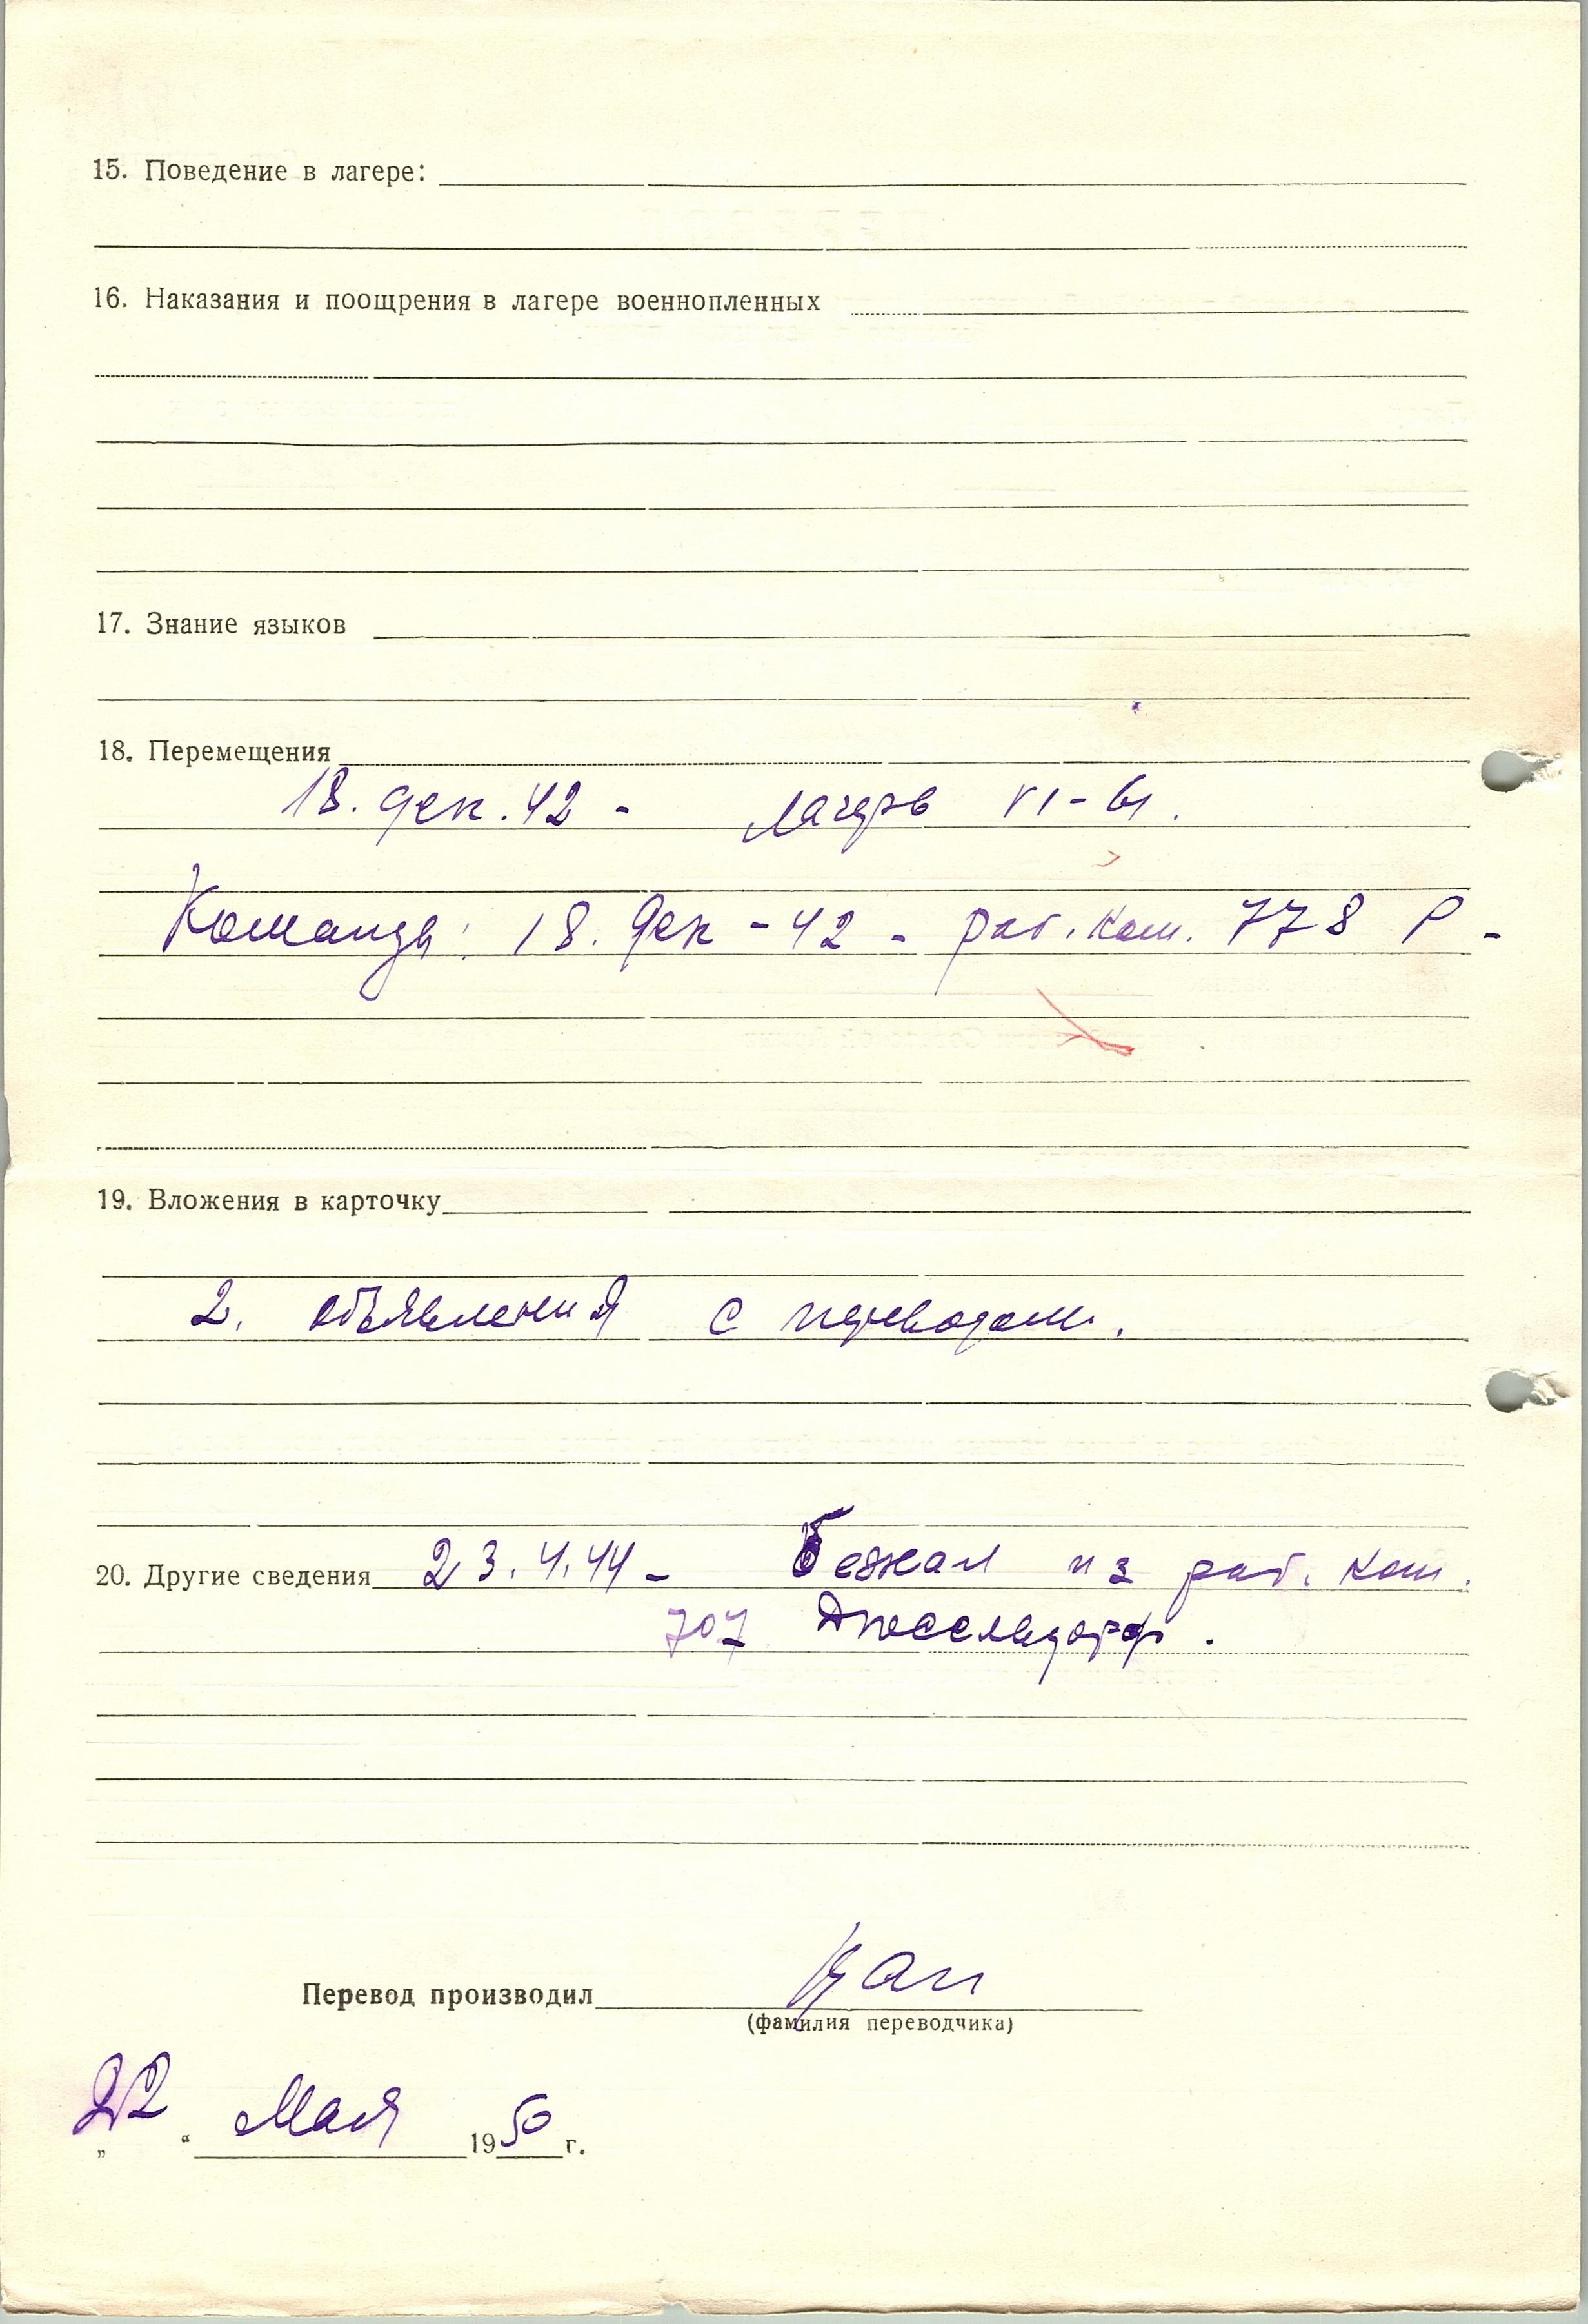 15. Поведение в лагере:
16. Наказания и поощрения в лагере военнопленных
17. Знание языков
18. Перемещения
18. дек. 42 - лагерь VI-
Команда: 18. Дек - 42 - раб. ком. 778 Р -
19. Вложения в карточку
2. объявления с переводом.
20. Другие сведения 23.4.44 - Бежал из раб. ком.
707 Дюссельдорф.
Перевод производил
(фамилия переводчика)
„22“ Мая 1950 г.